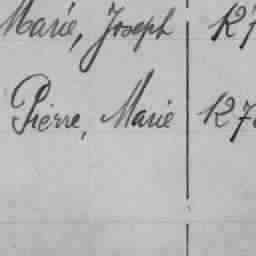 Marie, Joseph K7
Pierre, Marie K7